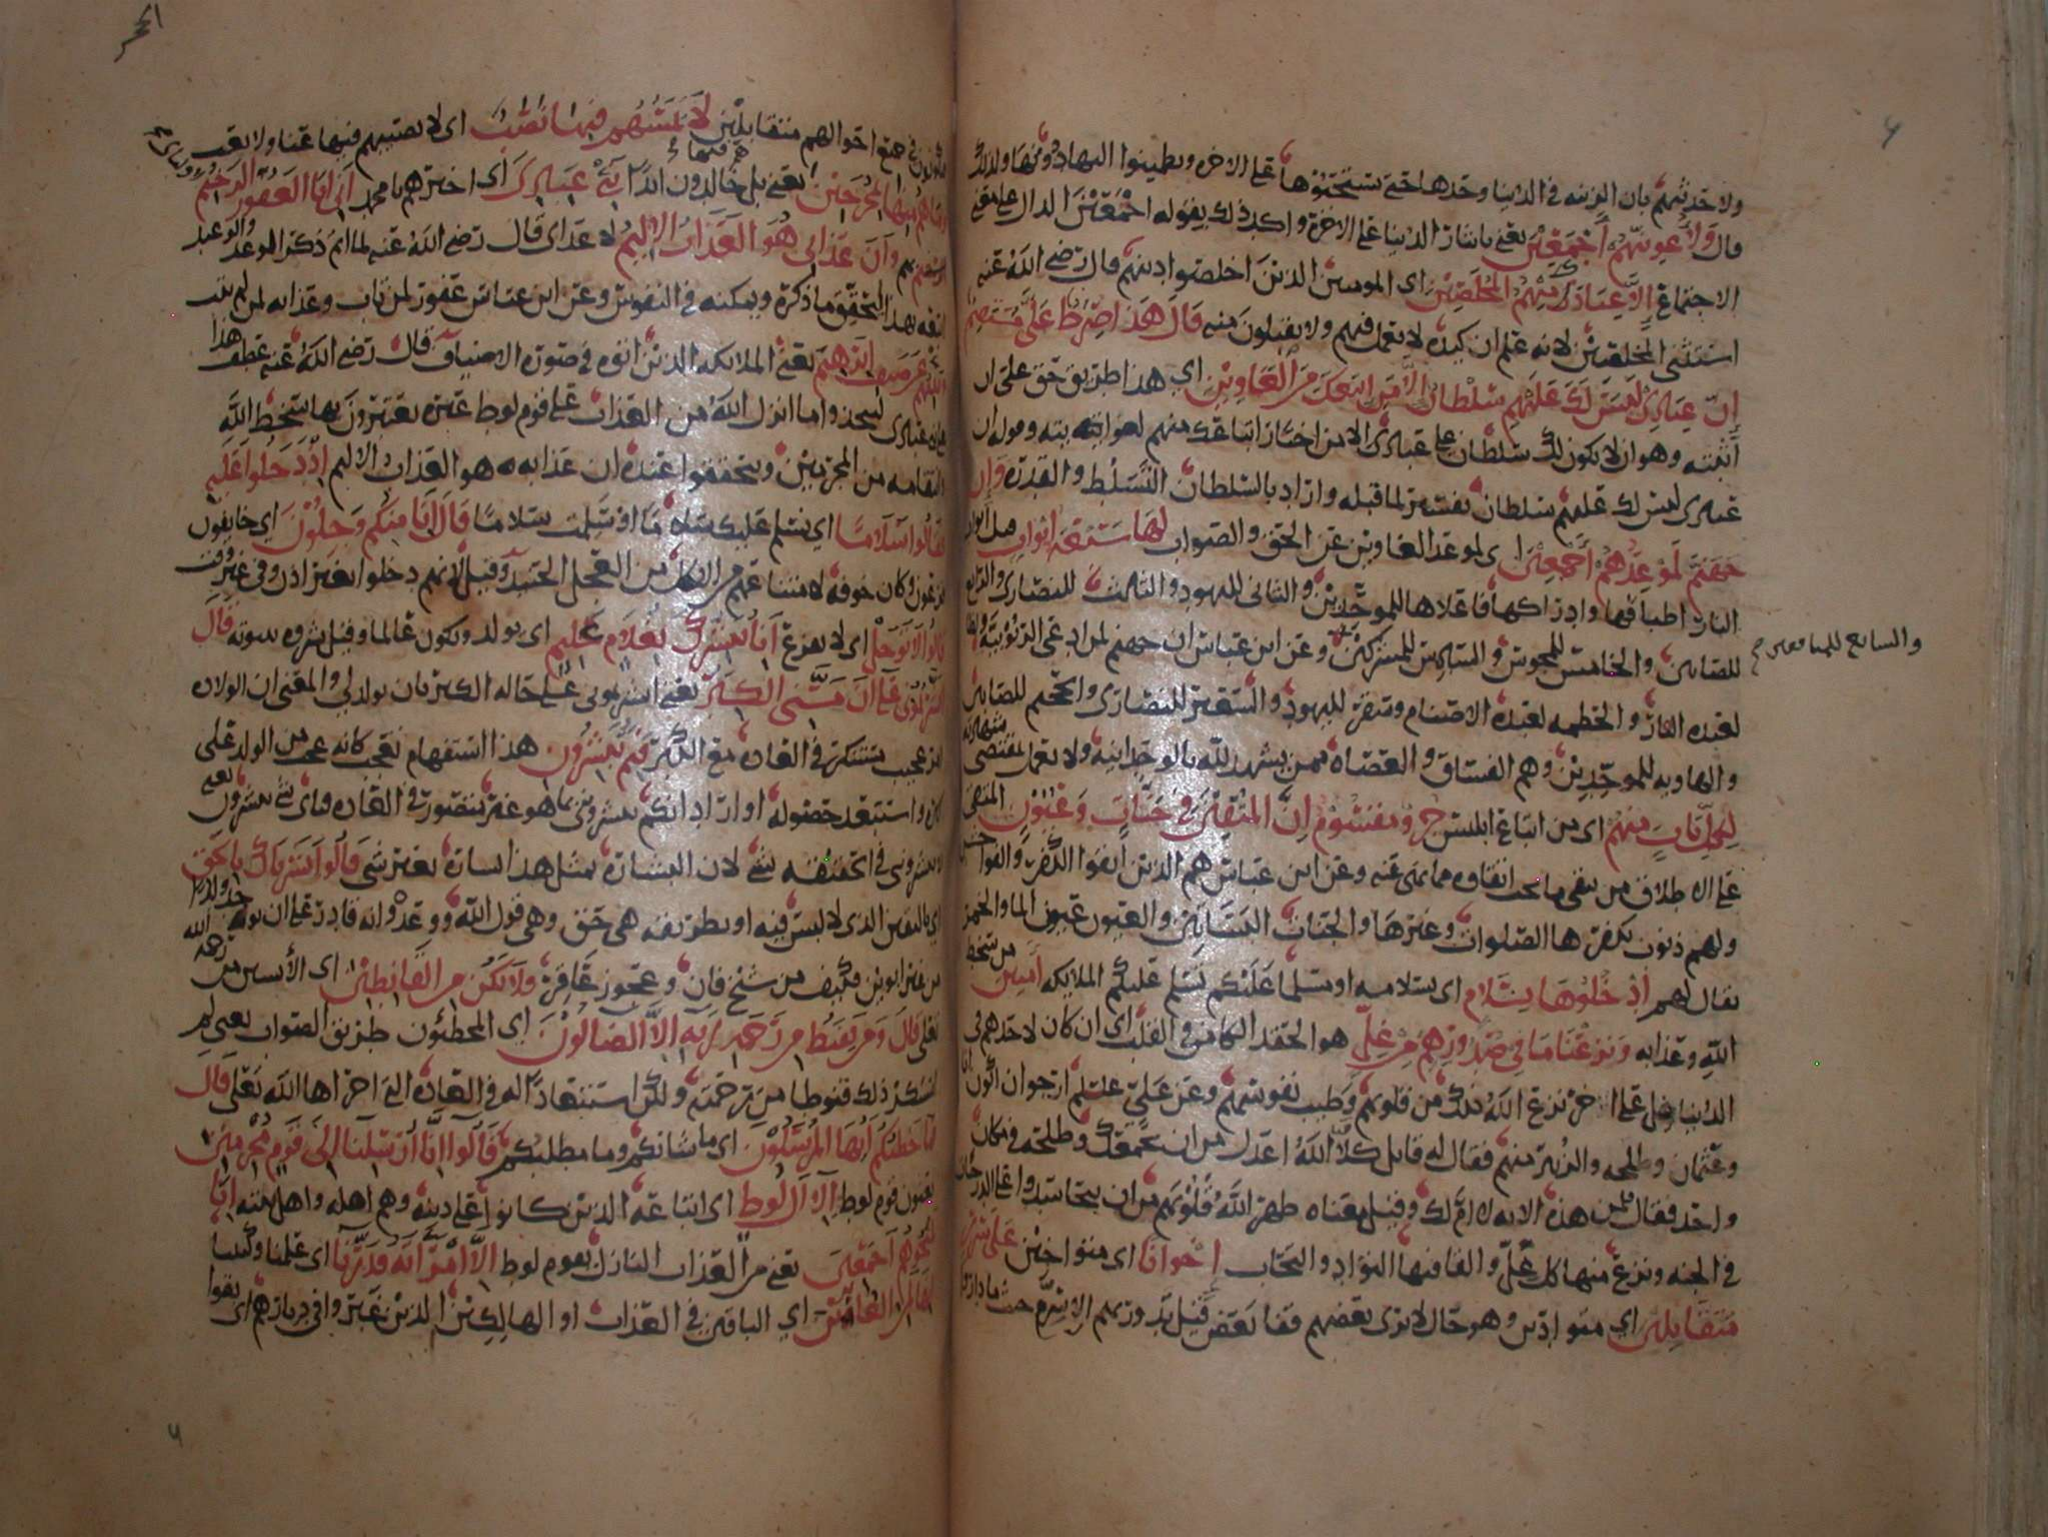 ولاحدثنهم بان الزينه في الدنيا وحدها حتى يستحبوها على الاخرة ويطمينوا اليها دونها ولذلك
قال ولاغوينهم اجمعين يعني بايثار الدنيا على الاخرة واكد ذلك بقوله اجمعين الدال على معنى
الاجتماع الا عبادك منهم المخلصين اي المومنين الذين اخلصوا دينهم قال رضي الله عنه
استثنى المخلصين لانه علم ان كيده لا يعمل فيهم ولا يقبلون منه قال هذا صراط علي مستقيم
ان عبادي ليس لك عليهم سلطان الا من اتبعك من الغاوين اي هذا طريق حق علي ان
اثبته وهو ان لا يكون لك سلطان على عبادي الا من اختار اتباعك منهم لغوايته وقوله ان
عبادي ليس لك عليهم سلطان تفسير لما قبله واراد بالسلطان التسلط والقدرة وان
جهنم لموعدهم اجمعين اي لموعد الغاوين عن الحق والصواب لها سبعة ابواب قيل ابواب
النار اطباقها وادراكها فاعلاها للموحدين والثاني لليهود والثالث للنصارى والرابع
للصابين والخامس للمجوس والسادس للمشركين وعن ابن عباس ان جهنم لمن ادعى الربوبية ولظى
والسابع للمنافقين
لعبدة النار والحطمه لعبدة الاصنام وسقر لليهود والسعير للنصارى والجحيم للصابين
والهاويه للموحدين وهم الفساق والعصاه ممن يشهد لله بالوحدانية ولا يعمل بمقتضى شهادته
لكل باب منهم اي من اتباع ابليس جزؤ مقسوم ان المتقين في جنات وعيون المتقي
على الاطلاق من يتقي ما يجب اتقاوه مما نهى عنه وعن ابن عباس هم الذين اتقوا الكفر والفواحش
ولهم ذنوب تكفرها الصلوات وغيرها والجنات البساتين والعيون عيون الما والخمر
يقال لهم ادخلوها بسلام اي بسلامه او مسلما عليكم تسلم عليكم الملايكه امنين من سخط
الله وعذابه ونزعنا ما في صدورهم من غل هو الحقد الكامن في القلب اي ان كان لاحدهم في
الدنيا غل على اخر نزع الله ذلك من قلوبهم وطيب نفوسهم وعن علي عليلم ارجوا ان اكون انا
وعثمان وطلحه والزبير منهم فقال له قايل كلا الله اعدل من ان يجمعك وطلحه في مكان
واحد فقال فلمن هذه الاية لا ام لك وقيل معناه طهر الله قلوبهم من ان يتحاسدوا على الدرجات
في الجنه ونزع منها كل غل والقا فيها التوادد والتحاب اخوانا اي متواخين على سرر
متقابلين اي متوادين وهو حال لا يرى بعضهم قفا بعض قيل تدور بهم الاسره حيث ما داروا
الحجر
فيكونون في جميع احوالهم متقابلين لا يمسهم فيها نصب اي لا يصيبهم فيها عنا ولا تعب
وما هم منها بمخرجين يعني بل خالدون ابدا نبئ عبادي اي اخبرهم يا محمد اني انا الغفور الرحيم
وان عذابي هو العذاب الاليم لا عذاب قال رضي الله عنه لما اتم ذكر الوعد والوعيد
اتبعه بهذا لتحقق ما ذكره ويمكنه في النفوس وعن ابن عباس غفور لمن تاب وعذابه لمن لم يتب
ونبئهم عن ضيف ابراهيم يعني الملايكه الذين اتوه في صورة الاضياف قال رضي الله عنه عطف هذا
على نبئ عبادي ليتخذوا ما انزل الله من العذاب على قوم لوط عبرة يعتبرون بها سخط الله
وانتقامه من المجرمين ويتحققوا عنده ان عذابه هو العذاب الاليم اذ دخلوا عليه
فقالوا سلاما اي نسلم عليك سلاما او سلمت سلاما قال انا منكم وجلون اي خايفون
فزعون وكان خوفه لامتناعهم من الاكل من العجل الحنيذ وقيل لانهم دخلوا بغير اذن وفي غير وقت
قالوا لا توجل اي لا تفزع انا نبشرك بغلام عليم اي يولد ويكون عالما وقيل بشروه بنبوته قال
ابشرتموني على ان مسني الكبر يعني ابشرتموني على حالة الكبر بان يولد لي والمعنى ان الولاده
امر عجيب مستنكر في العاده مع الكبر فبم تبشرون هذا استفهام تعجب كانه عجب من الولد على
كبره واستبعد حصوله او اراد انكم تبشرونني بما هو غير متصور في العاده فاي شي تبشرون يعني
لا تبشرونني في الحقيقه بشي لان البشارة بمثل هذا بشارة بغير شي قالوا بشرناك بالحق
اي باليقين الذي لا لبس فيه او بطريقه هي حق وهي قول الله ووعده وانه قادر على ان يوجد ولدا
من غير ابوين فكيف من شيخ فان وعجوز عاقر فلا تكن من القانطين اي الأيسين من رحمه الله
تعالى قال ومن يقنط من رحمة ربه الا الضالون اي المخطئون طريق الصواب يعني لم
استنكر ذلك قنوطا من رحمته ولكن استبعادا له في العاده التي اجراها الله تعلى قال
فما خطبكم ايها المرسلون اي ما شانكم وما مطلبكم قالوا انا ارسلنا الى قوم مجرمين
يعنون قوم لوط الا آل لوط اي اتباعه الذين كانوا على دينه وهم اهله واهل بيته انا
لمنجوهم اجمعين يعني من العذاب النازل بقوم لوط الا امراته قدرنا اي علمنا وكتبنا
انها لمن الغابرين اي الباقين في العذاب او الهالكين الذين غبروا في ديارهم اي بقوا